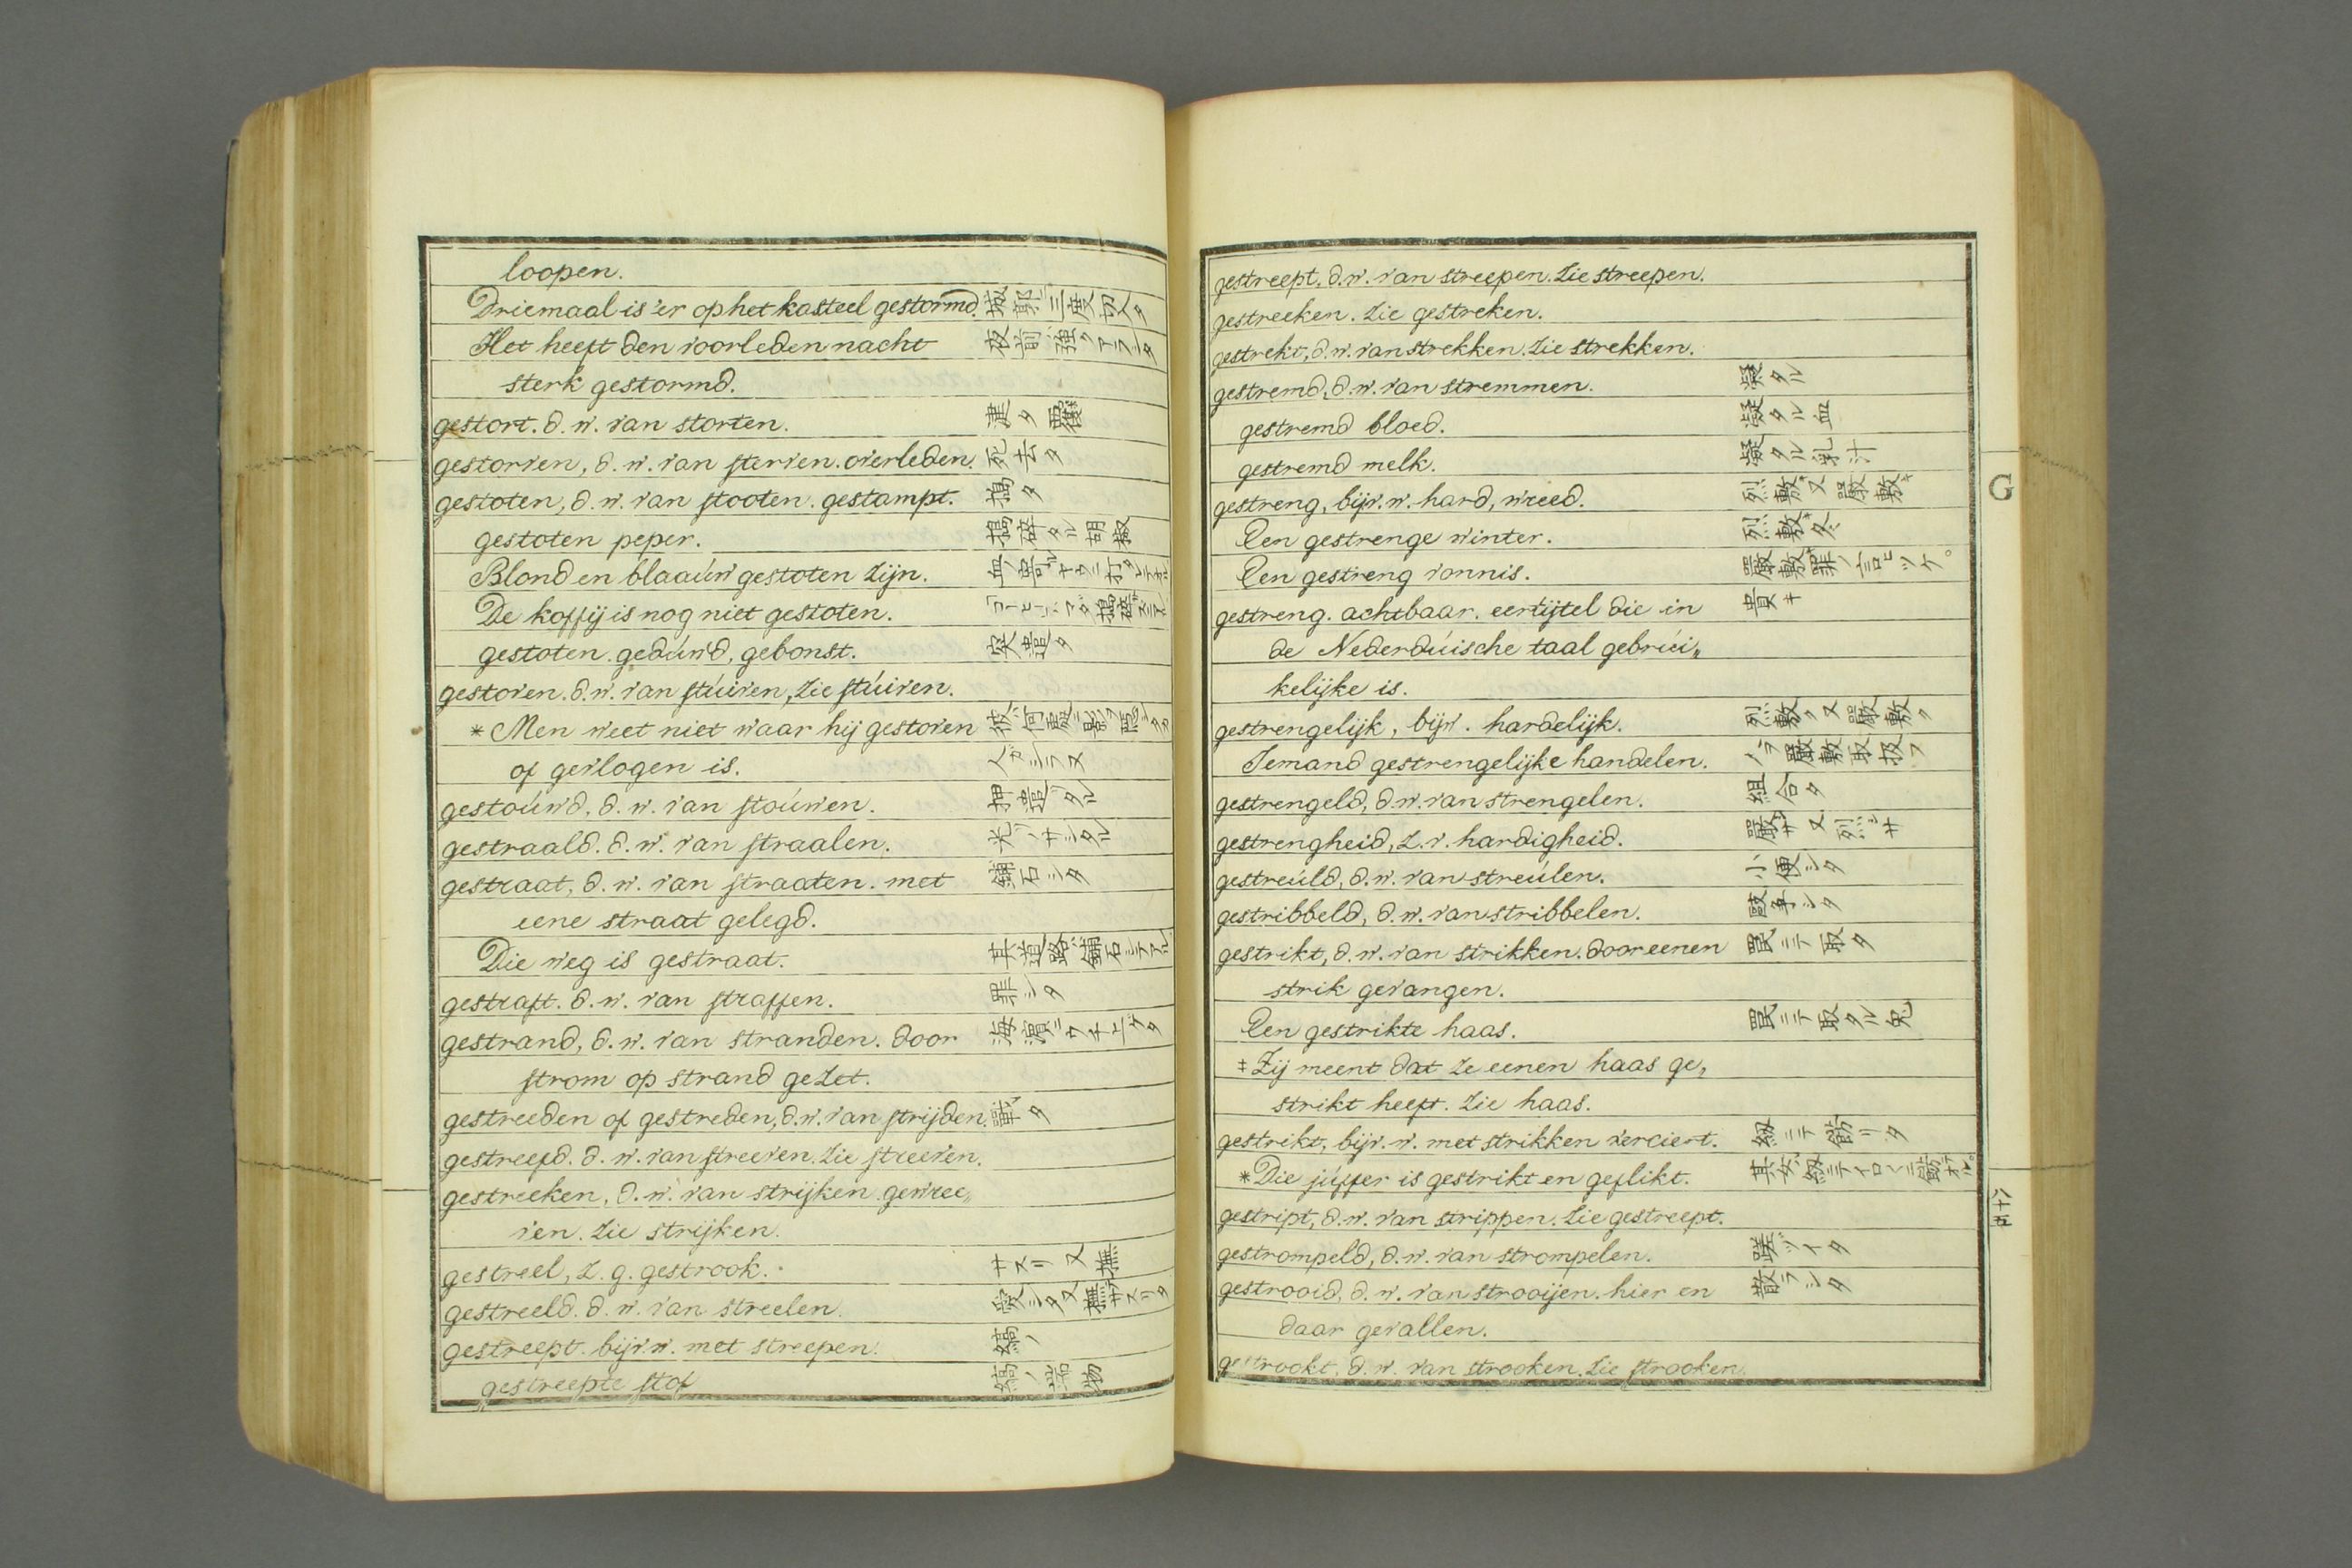 loopen.
Driemaal is 'er op het kasteel gestormd. 城郭ニ三度切入タ
Het heeft den voorleden nacht 夜前強クアラシタ
sterk gestormd.
gestort. d. w. van storten.
gestorven, d. w. van sterven. overleden. 死去タ
gestoten, d. w. van stooten. gestampt. 搗タ
gestoten peper. 搗碎タル胡椒
Blond en blaaúw gestoten zijn.
De koffij is nog niet gestoten.
gestoten. gedúwd, gebonst. 突當タ
gestoven. d. w. van stúiven, zie stúiven.
* Men weet niet waar hij gestoven
of gevlogen is. 人ガシラヌ
gestoúwd, d. w. van stoúwen.
gestraald. d. w. van straalen.
gestraat, d. w. van straaten. met 鋪石シタ
eene straat gelegd.
Die weg is gestraat. 其道路ハ鋪石シテアル
gestraft. d. w. van straffen. 罪シタ
gestrand, d. w. van stranden. door 海濱ニウチ上ゲタ
strom op strand gezet.
gestreeden of gestreden, d. w. van strijden. 戰タ
gestreefd. d. w. van streeven. zie streeven.
gestreeken, d. w. van strijken. gewree„
ven. zie strijken.
gestreel, z. g. gestrook. サスリ 又 撫
gestreeld. d. w. van streelen. 愛シタ又撫サスリタ
gestreept. bijv. w. met streepen. 縞ノ
gestreepte stof 縞ノ端物
gestreept. d. w. van streepen. zie streepen.
gestreeken. zie gestreken.
gestrekt, d. w. van strekken. zie strekken.
gestremd, d. w. van stremmen. 凝タル
gestremd bloed. 凝タル血
gestremd melk. 凝タル乳汁
gestreng, bijv. w. hard, wreed. 烈敷又嚴敷キ
Een gestrenge winter. 烈敷キ冬
Een gestreng vonnis. 嚴敷罪ノ言ヒツケ。
gestreng. achtbaar. eertijtel die in 貴キ
de Nederdúische taal gebrúi„
kelijke is.
gestrengelijk, bijw. hardelijk. 烈敷ク又嚴敷ク
Iemand gestrengelijke handelen. 人ヲ嚴敷取扱フ
gestrengeld, d. w. van strengelen. 組合タ
gestrengheid, z. v. hardigheid. 嚴サ又烈シサ
gestreúld, d. w. van streúlen. 小便シタ
gestribbeld, d. w. van stribbelen.
gestrikt, d. w. van strikken. door eenen 罠ニテ取タ
strik gevangen.
Een gestrikte haas. 罠ニテ取タル兎
‡ Zij meent dat ze eenen haas ge„
strikt heeft. zie haas.
gestrikt, bijv. w. met strikken verciert. 紐ニテ飾リタ
* Die júffer is gestrikt en geflikt.
gestript, d. w. van strippen. zie gestreept.
gestrompeld, d. w. van strompelen.
gestrooid, d. w. van strooijen. hier en 散ラシタ
daar gevallen.
gestrookt, d. w. van strooken. zie strooken.
G